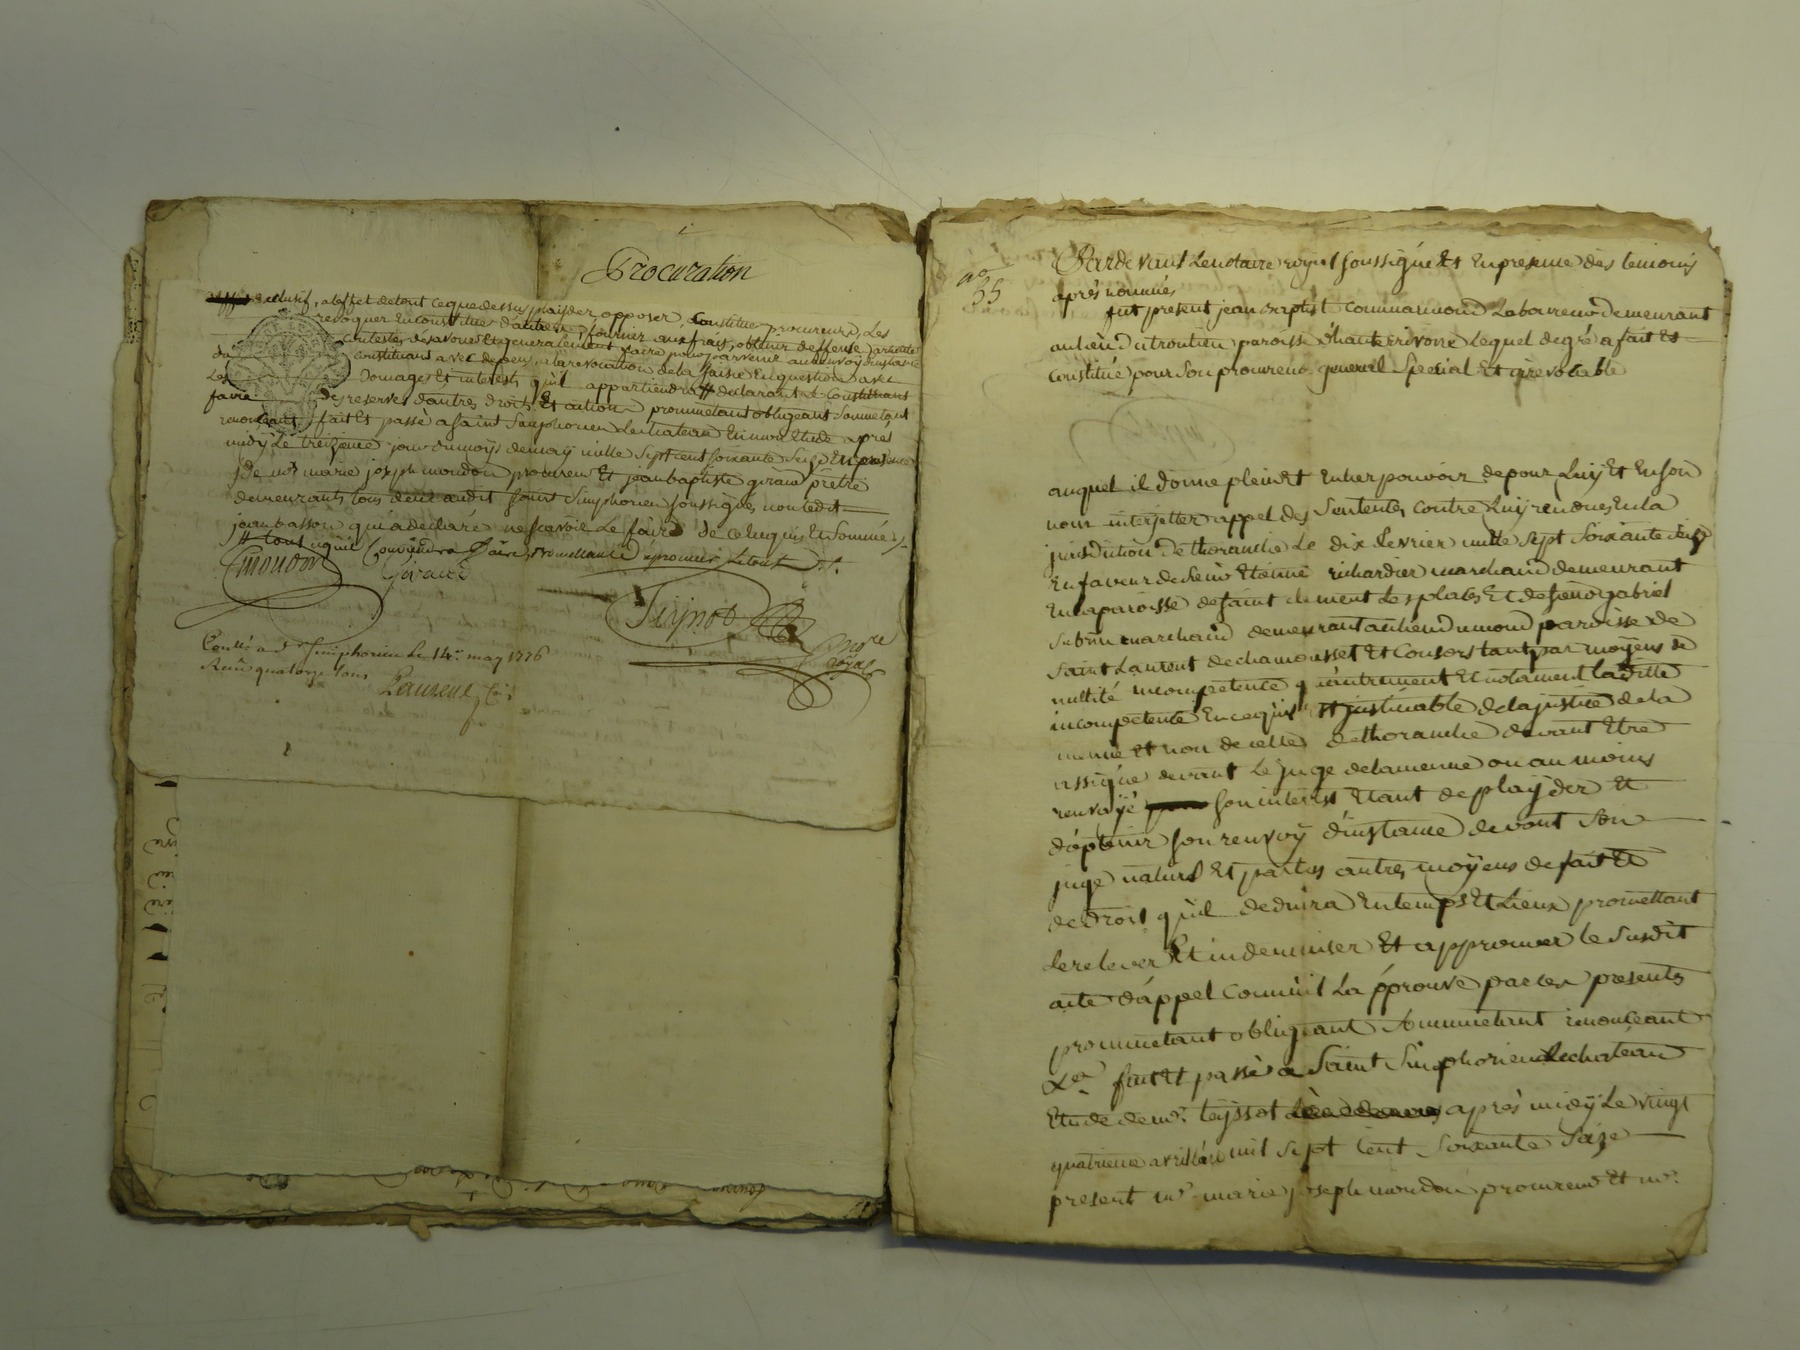 Procuration
exclusif, a leffet de tout ce que dessus playder, opposer, Constituer procureurs, Les
revoquer En constituer d'autres, fournir aux frais, obtenir deffense,
contester, desavouer Et generalement faire pour parvenir au renvoy dinstance
du Constituant avec depens, a la revocation de la saisie En question avec
Les Domages Et interest, qu'il appartiendra # declarant Le Constituant
faire des reserves d'autres droits Et action prommetant obligeant Soumetant
renonceant, fait Et passé a saint Simphorien Lechateau En mon Etude après
midy Le treizieme jour du moys de may mille sept cent soixante seize En presence
de mrs marie joseph mondon procureur Et jean baptiste girain prêtre
demeurants tous deux audit saint Simphorien soussignés non ledit
jean basson qui a declaré ne scavoir Le faire de ce requis Et Sommé ./.
# tout ce qu'il Conviendra faire, Promettant approuver Le tout ./.
Emondon Giraud
Teyssot
nore royal
Conllé a St Simphorien Le 14e may 1776
Reçu quatorze sous
Laurent, Cis
no 35
Pardevant Le notaire royal soussigné Et En presence des temoins
après nommés
fut present jean Baptist Commarmond Laboureur demeurant
au lieu du troutieu paroisse d'hauterivoire Lequel de gré a fait Et
Constitué pour Son procureur general Special Et irevocable
auquel il donne plein Et Entier pouvoir de pour Luy Et En son
nom interjetter appel des Sentences Contre Luy rendues En la
jurisdiction de thoranche Le dix fevrier mille sept soixante seize
En faveur de Sieur Etienne richardier marchand demeurant
En la paroisse de saint clement Les places Et de sieur gabriel
Subrin marchand demeurant au lieu du mond paroisse de
Saint Laurent de chamousset Et Consors tant par moyens de
nullité incompetence qu'autrement Et notament la ditte
incompetence En ce qu'il Et justiciable de la justice de la
menue Et non de celle de thoranche devant Etre
assigné devant Le juge de la menue ou au moins
renvoyé son interest Etant de playder Et
d'obtenir son renvoy d'instance devant Son
juge naturel Et par les autres moyens de fait Et
de Droit qu'il deduira En temps Et Lieux promettant
Le relever Et indemniser Et approuver le Susdit
acte d'appel Comme il L'approuve par ces presentes
prommetant obligeant Soummetant renonceant
&a fait Et passé a Saint Simphorien Lechateau
Etude de mr teyssot après midy Le vingt
quatrieme avril mil sept cent Soixante Saize
present mr marie joseph mondon procureur Et mr